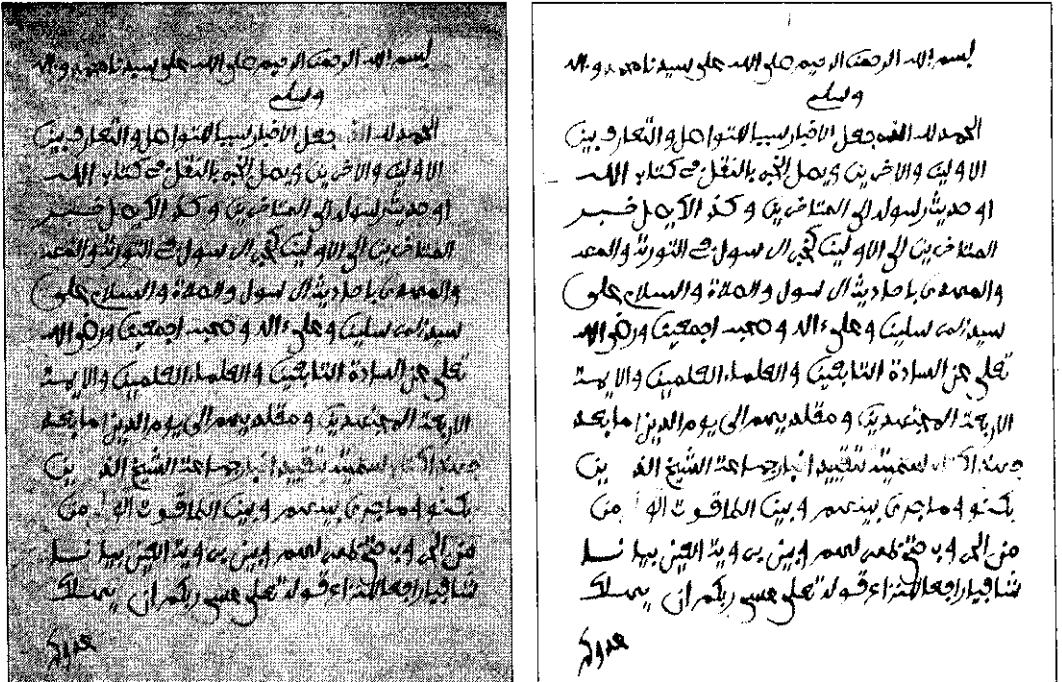 بسم الله الرحمن الرحيم صلى الله على سيدنا محمد وءاله
وسلم
الحمد لله الذي جعل الاخبار سببا للتواصل والتعارف بين
الاولين والاخرين ويصل الخبر بالنقل في كتاب الله
او حديث رسوله الى المتاخرين وكذا الايصل خبر
المتاخرين الى الاولين كخبر الرسول في التورية والمعد
والمهدى باحاديث الرسول والصلاة والسلام على
سيد المرسلين وعلى ءاله وصحبه اجمعين ورضي الله
تعلى عن السادة التابعين والعلماء العلمين والايمة
الاربعة المجتهدين ومقلديهم الى يوم الدين اما بعد
لتقييد اخبار جماعة الشيخ
بكنو وما جرى بينهم وبين من
من لهم وبين بيانا
شافيا رافعا للنزاع قوله تعلى عسى ربكم ان يهلك
عدوكم
بسم الله الرحمن الرحيم صلى الله على سيدنا محمد وءاله
وسلم
الحمد لله الذي جعل الاخبار سببا للتواصل والتعارف بين
الاولين والاخرين ويصل الخبر بالنقل في كتاب الله
او حديث رسوله الى المتاخرين وكذا الايصل خبر
المتاخرين الى الاولين كخبر الرسول في التورية والمعد
والمهدى باحاديث الرسول والصلاة والسلام على
سيد المرسلين وعلى ءاله وصحبه اجمعين ورضي الله
تعلى عن السادة التابعين والعلماء العلمين والايمة
الاربعة المجتهدين ومقلديهم الى يوم الدين اما بعد
لتقييد اخبار جماعة الشيخ
بكنو وما جرى بينهم وبين من
من لهم وبين بيانا
شافيا رافعا للنزاع قوله تعلى عسى ربكم ان يهلك
عدوكم